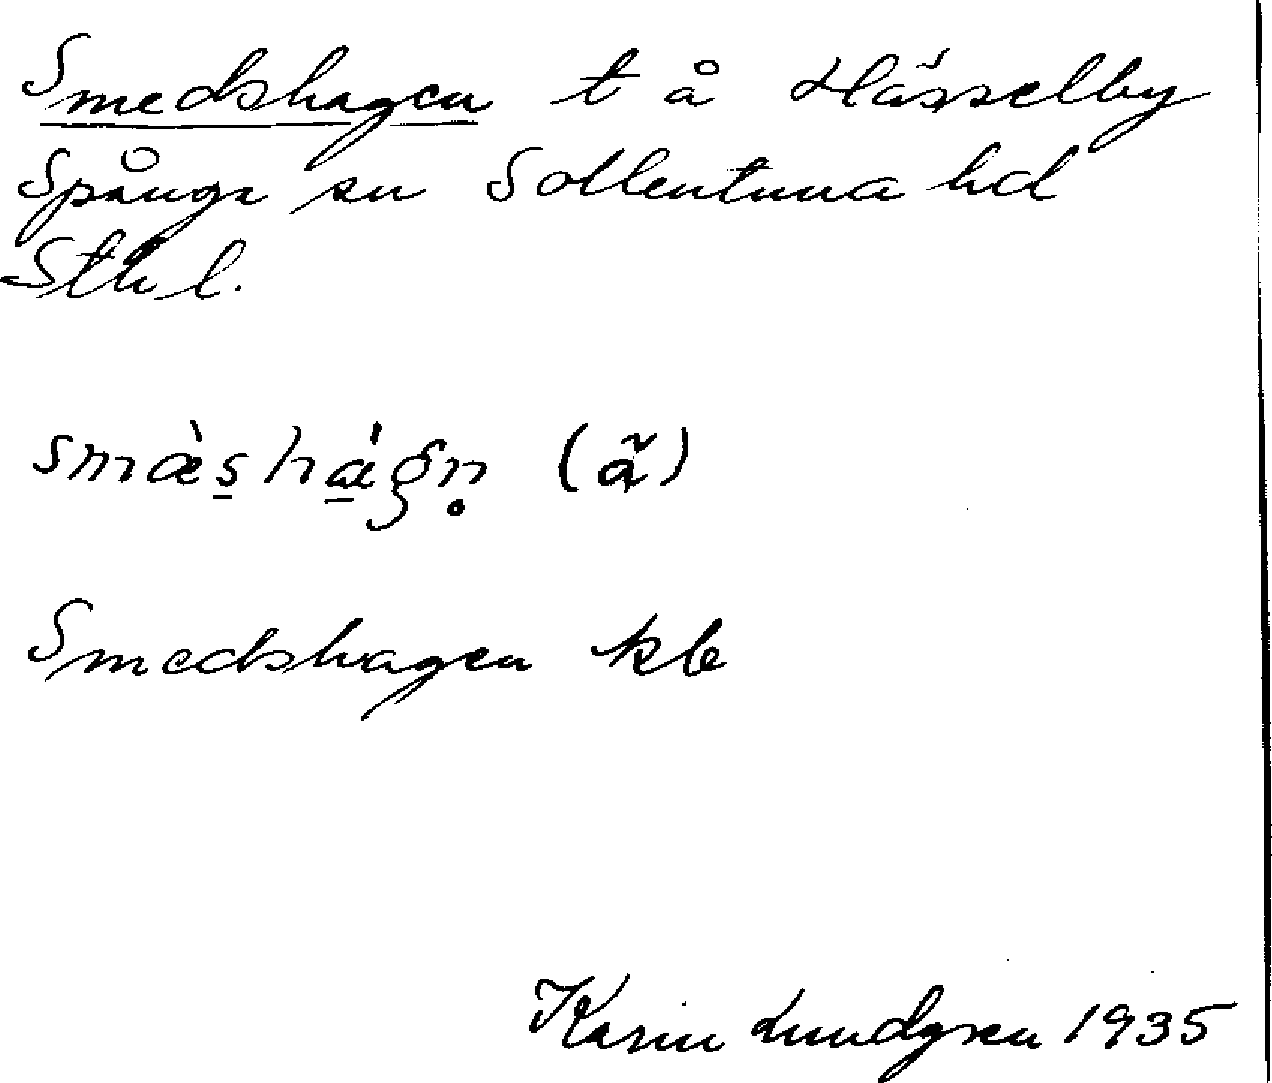 Smedshagen t å Hässelby
Spånga sn Sollentuna hd
Sthl.
smæ̀s̲há̲gn̥ (ã)
Smedshagen kb
Karin Lundgren 1935